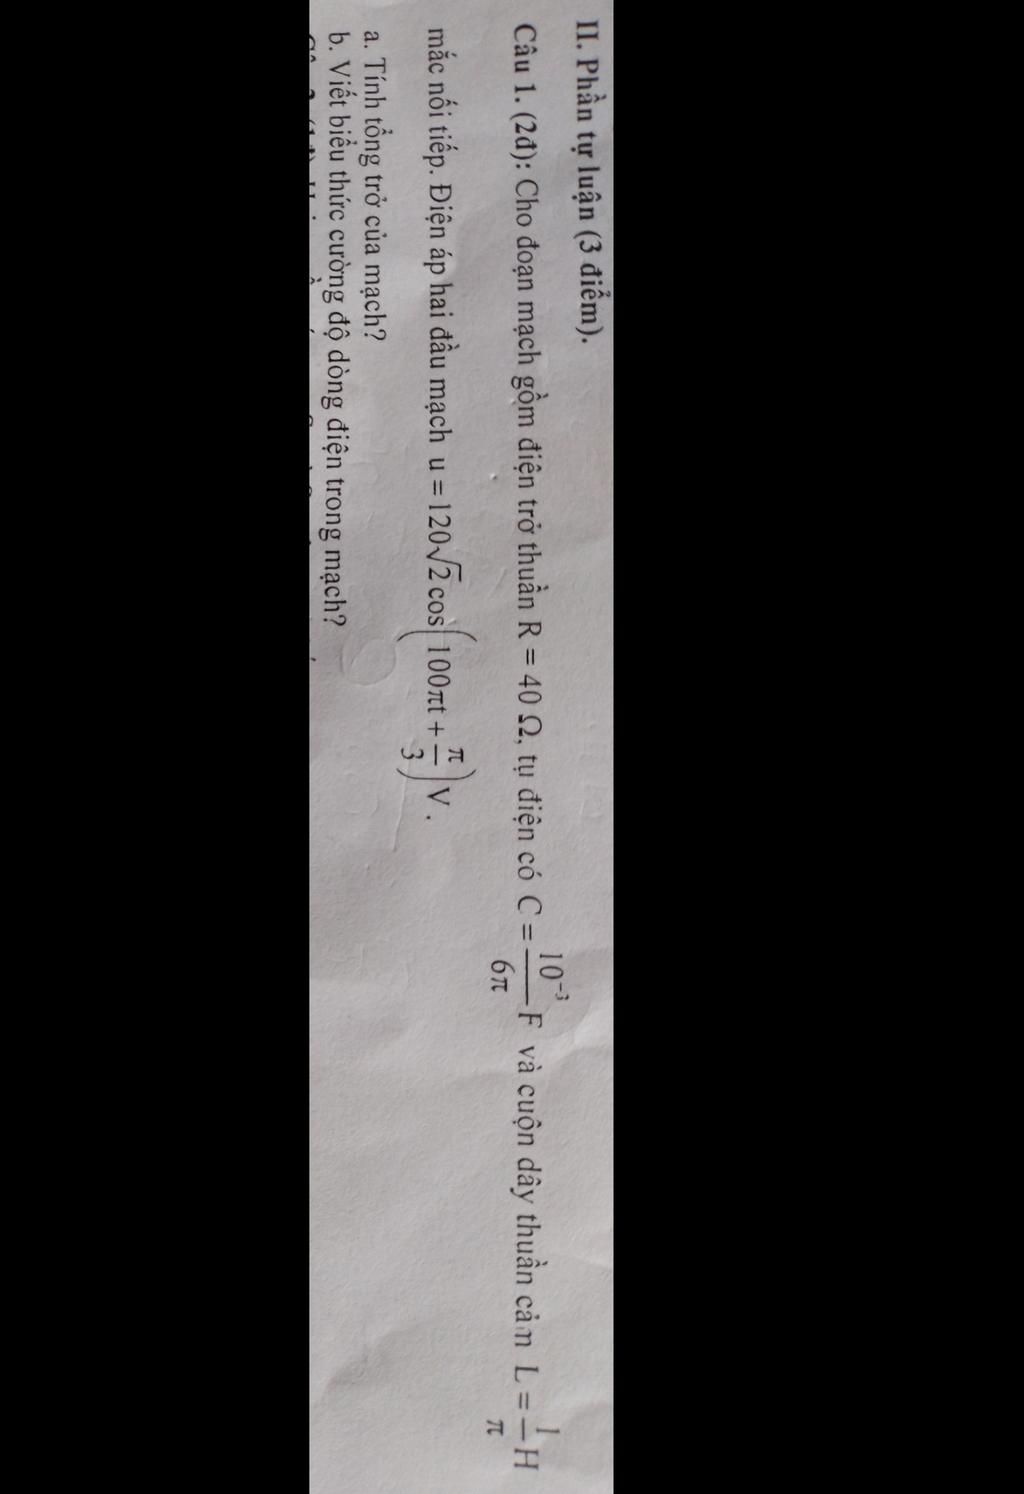 II. Phần tự luận (3 điểm).
Câu 1. (2đ): Cho đoạn mạch gồm điện trở thuần R = 40 Ω, tụ điện có C = 10⁻³/6π F và cuộn dây thuần cảm L = 1/π H
mắc nối tiếp. Điện áp hai đầu mạch u = 120√2 cos(100πt + π/3) V .
a. Tính tổng trở của mạch?
b. Viết biểu thức cường độ dòng điện trong mạch?